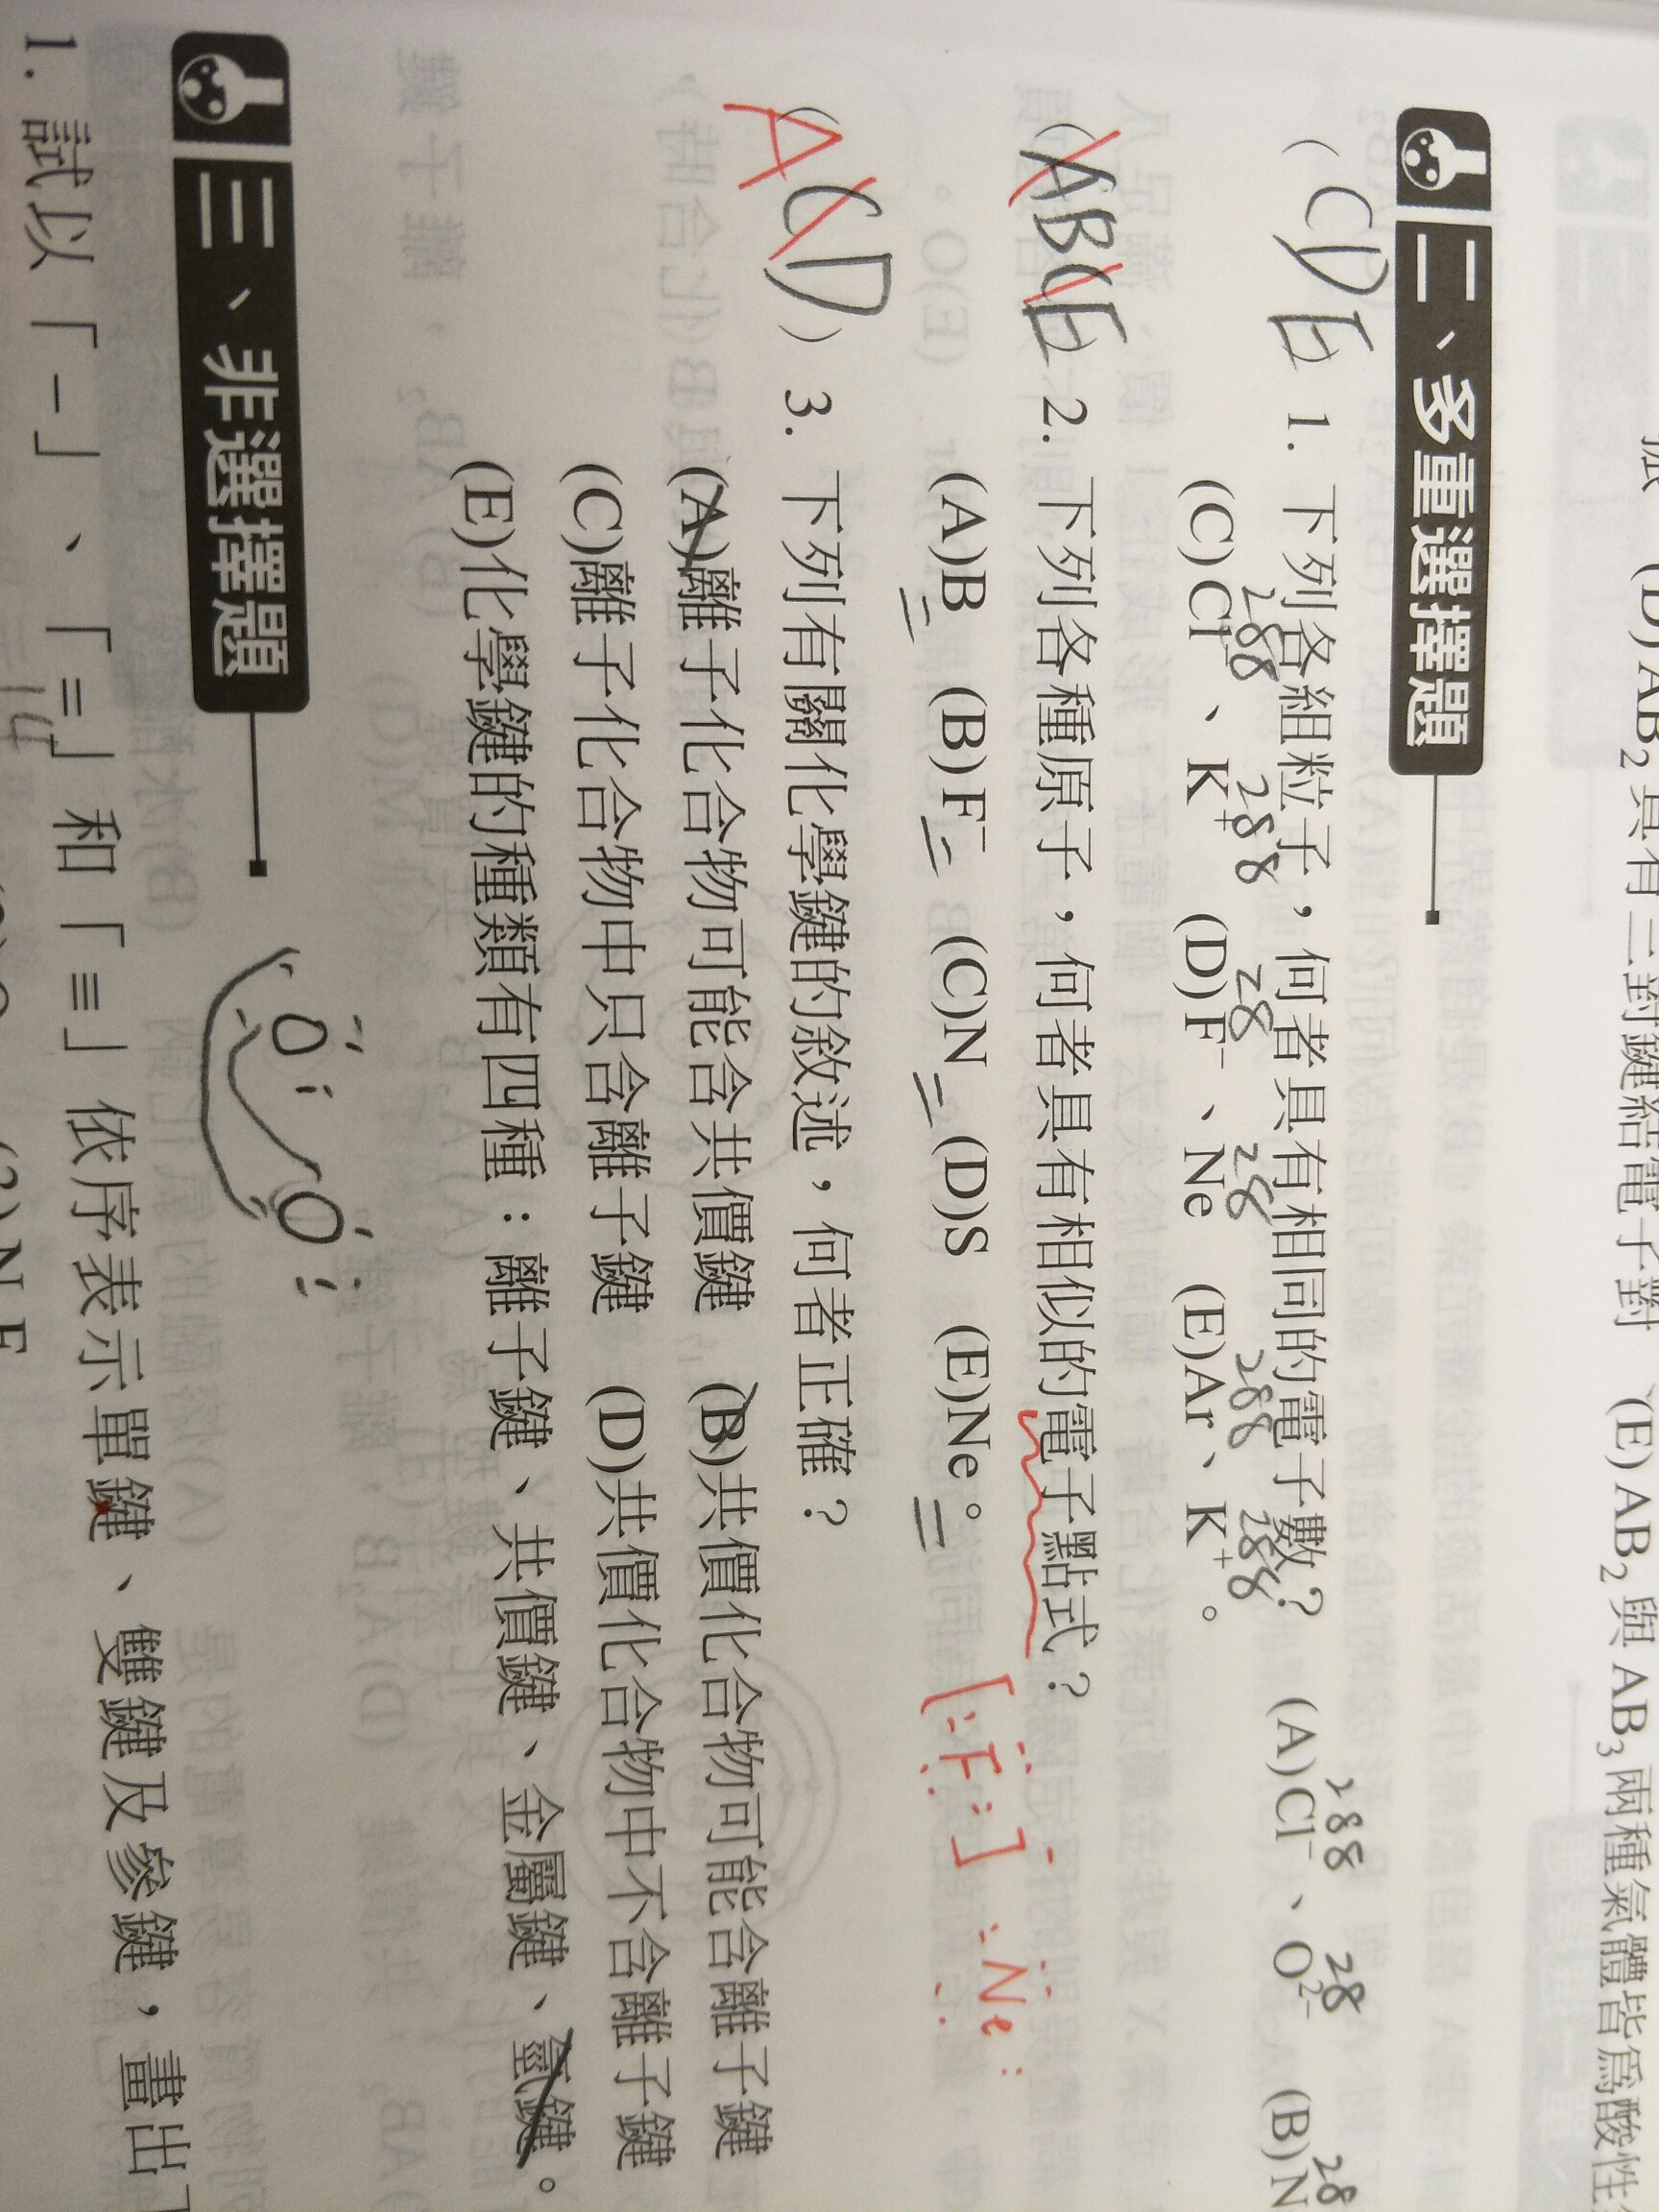 振 (D) AB₂ 具有三對鍵結電子對 (E) AB₂ 與 AB₃ 兩種氣體皆爲酸性
二、多重選擇題
(CDE) 1. 下列各組粒子，何者具有相同的電子數？ (A)Cl⁻、O²⁻ (B)N
288 28 28
(C) Cl⁻、K⁺ (D)F⁻、Ne (E)Ar、K⁺。
288 288 28 28 288 288
(ABCE) 2. 下列各種原子，何者具有相似的電子點式？
(A)B (B)F⁻ (C)N (D)S (E)Ne。
[:F:]⁻ :Ne:
(A CD) 3. 下列有關化學鍵的敘述，何者正確？
(A)離子化合物可能含共價鍵 (B)共價化合物可能含離子鍵
(C)離子化合物中只含離子鍵 (D)共價化合物中不含離子鍵
(E)化學鍵的種類有四種：離子鍵、共價鍵、金屬鍵、氫鍵。
O O
三、非選擇題
1. 試以「−」、「=」和「≡」依序表示單鍵、雙鍵及參鍵，畫出
14